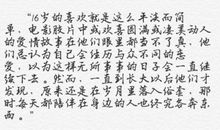 "16岁的喜欢就是这么平淡而简
单,电影胶片中或喜圆满或凄美动人
的爱情故事在他们眼里都当不了真,他
们总认为自己会经历与众不同的恋
爱,以为这样无所事事的日子会一直继
续下去。然而,一直到长大以后他们才
发现,原来还是在岁月里落入俗套,那
时每天都陪伴在身的人也终究各奔东
西。"